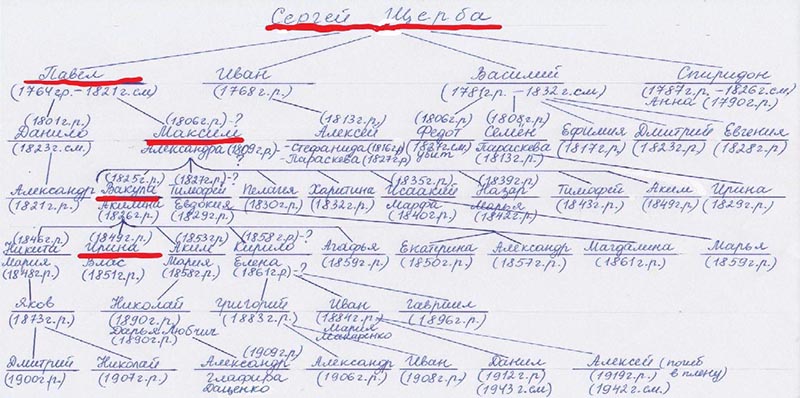 Сергей Щерба
Павел Иван Василий Спиридон
(1764гр.-1821г.см) (1768г.р.) (1781гр.-1832г.см) (1787г.р.-1826г.см)
Анна (1790г.р.)
(1801г.р.) (1806г.р)-? (1813г.р.) (1806г.р) (1808г.р)
Данило Максим Алексей Федот Семён Ефимия Дмитрий Евгения
(1823г.см.) Александра(1809г.р) -Стефанида(1816гр) (1837г.см) Параскева (1817г.р) (1823г.р) (1828г.р)
Параскева(1827г.р) убит (1813г.р.)
(1825г.р) (1827г.р)-? (1835г.р) (1839г.р)
Александр Вакула Тимофей Пелагия Харитина Исаакий Назар Тимофей Аким Ирина
(1821г.р.) Акилина Евдокия (1830г.р) (1832г.р.) Марфа Марья (1843г.р.) (1849г.р) (1829г.р.)
(1826г.р) (1829г.р.) (1840г.р.) (1842г.р.)
(1846г.р) (1849г.р.) (1853г.р) (1858г.р)-?
Никита Ирина Аким Кирило Агафья Екатерина Александр Магдалина Марья
Мария Влас Мария Елена (1859г.р.) (1850г.р.) (1857г.р.) (1861г.р.) (1859г.р.)
(1848г.р) (1851г.р.) (1858г.р.) (1861г.р)-?
Яков Николай Григорий Иван Гавриил
(1873г.р.) (1890г.р.) (1883г.р.) (1884г.р.) (1896г.р.)
Дарья Любчич Мария
(1890г.р) Макаренко
(1909г.р)
Дмитрий Николай Александр Александр Иван Данил Алексей (погиб
(1900г.р) (1907г.р.) Глафира (1906г.р.) (1908г.р.) (1912г.р) (1919г.р.) в плену)
Даценко (1943г.см) (1942г.см)